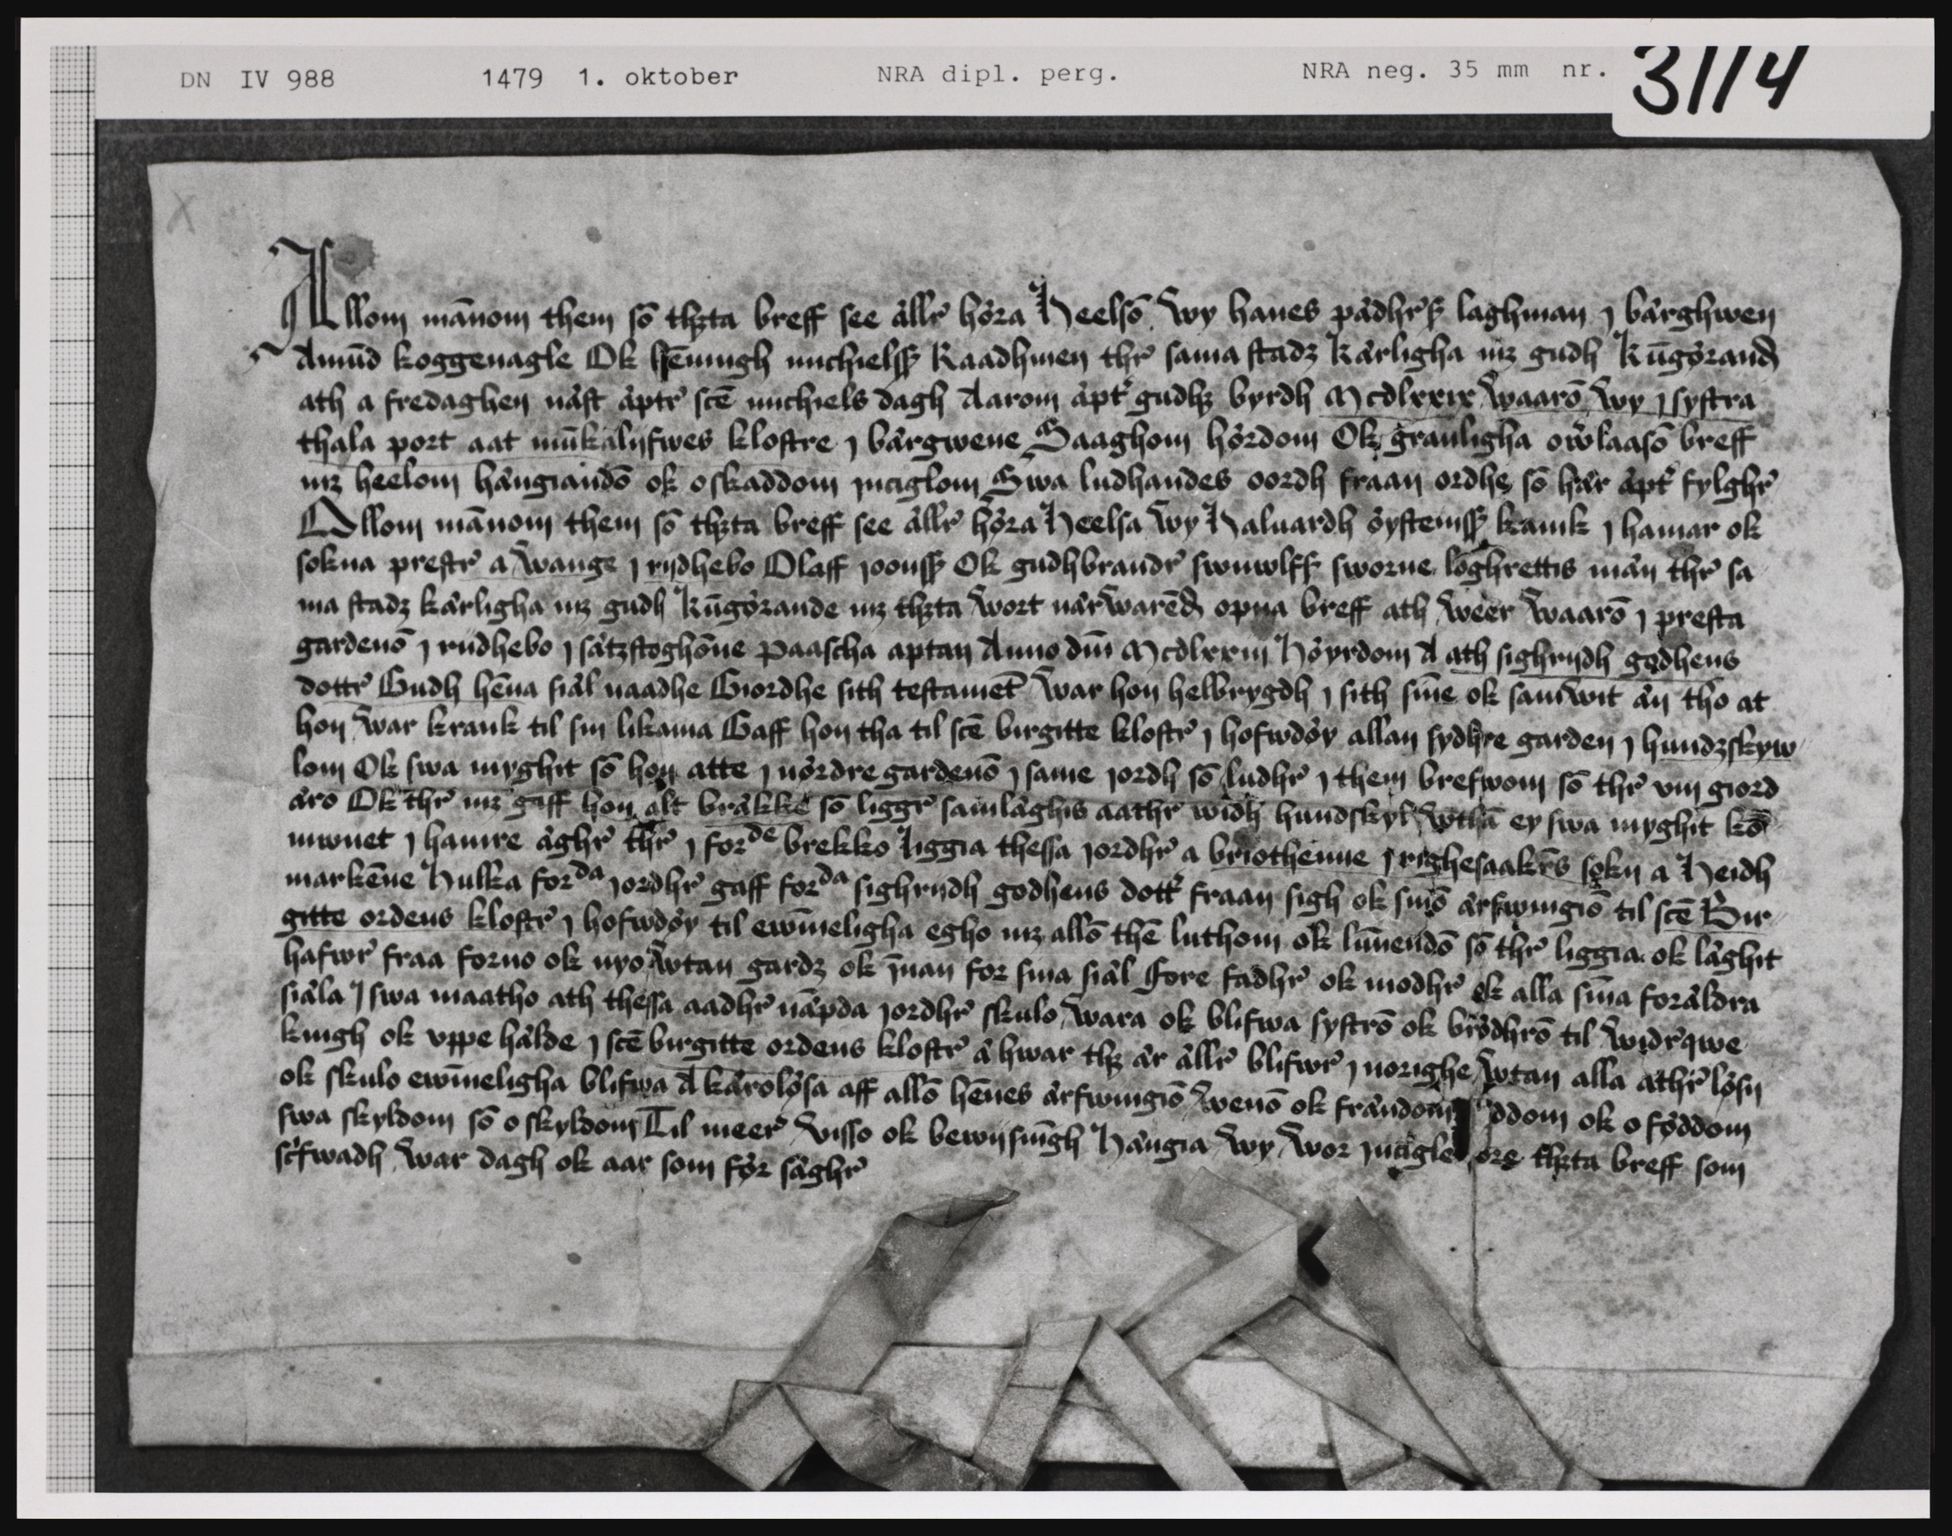 DN IV 988 1479 1. oktober NRA dipl. perg. NRA neg. 35 mm nr. 3114
Allom mānom them sō thꝫta breff see ällr̄ höra Heelsō Wy hanes pädhrsꝫ laghman j bärghwen
Amūd koggenagle Ok hēningh michielssꝫ Raadhmen thr̄ sama stadz kärligha mꝫ gudh kūgörand
ath a fredaghen näst äptr̄ scē michiels dagh Aarom äpt̄ gudhꝫ byrdh Mcdlxxix waarō wy j systra
thala port aat mūkalijfwes klostre j bärgwene Saaghom hördom Ok granligha ow̄laasō breff
mꝫ heelom hängiandō ok oskaddom jnciglom Swa ludhandes oordh fraan ordhe sō här äpt̄ fylghr̄
Ollom mānom them sō thꝫta breff see ällr̄ höra Heelsa Wy Haluardh öysteinssꝫ kanik j hamar ok
sokna prestr̄ a wange j rijdhebo Olaff joonssꝫ Ok gudhbrandr̄ swnwlfsꝫ sworne löghrettis män thr̄ sa
ma stadz kärligha mꝫ gudh kūgörande mꝫ thꝫta wort närwarēd opna breff ath weer waarō j presta
gardenō j rudhebo j sätzstoghōne paascha aptan Anno dm̄ Mcdlxxiii Höyrdom A ath sighrijdh godhens
dottr̄ Gudh hēna siäl naadhe Giordhe sith testamēt War hon helbrygdh j sith sin̄e ok samwit än tho at
hon war krank til sin likama Gaff hon tha til scē birgitte klostr̄ j hofwdöy allan sydhre garden j hundzskyw
lom Ok swa myghit sō hon atte j nördre gardenō j same jordh sō ludhr̄ j them brefwom sō thr̄ vm giord
äro Ok thr̄ mꝫ gaff hon alt bräkke sō liggr̄ samläghis aathr̄ widh hundskyl wthā ey swa myghit kō
mwnet j hamre äghr̄ thr̄ j forde brekko liggia thessa jordhr̄ a briothenne j righesaakrs sokn a Heidh
markēne Huilka forda jordhr̄ gaff forda sighrijdh godhens dott̄ fraan sigh ok sinō ärfwingiō til scē Bir
gitte ordens klostr̄ j hofwdöy til ewīneligha egho mꝫ allō thē luthom ok lūnendō sō thr̄ liggia ok läghit
hafwr̄ fraa forno ok nyo wtan gardz ok jnan for sina siäl Fore fadhr̄ ok modhr̄ ok alla sin̄a foräldra
siäla J swa maatho ath thessa aadhr̄ nämpda jordhr̄ skulo wara ok blifwa systrō ok brödhrō til widr̄qwe
kingh ok vppe hälde j scē birgitte ordens klostr̄ ä hwar thꝫ är ällr̄ blifwr̄ j norighe wtan alla äthr̄lösn
ok skulo ewīneligha blifwa A kärolösa aff allō hēnes ärfwingiō wenō ok frändom ddom ok oföddom
swa skyldom sō oskyldom Til meer̄ visso ok bewijsningh Hängia wy wor jncigle ore thꝫta breff som
scrfwadh war dagh ok aar som för säghr̄